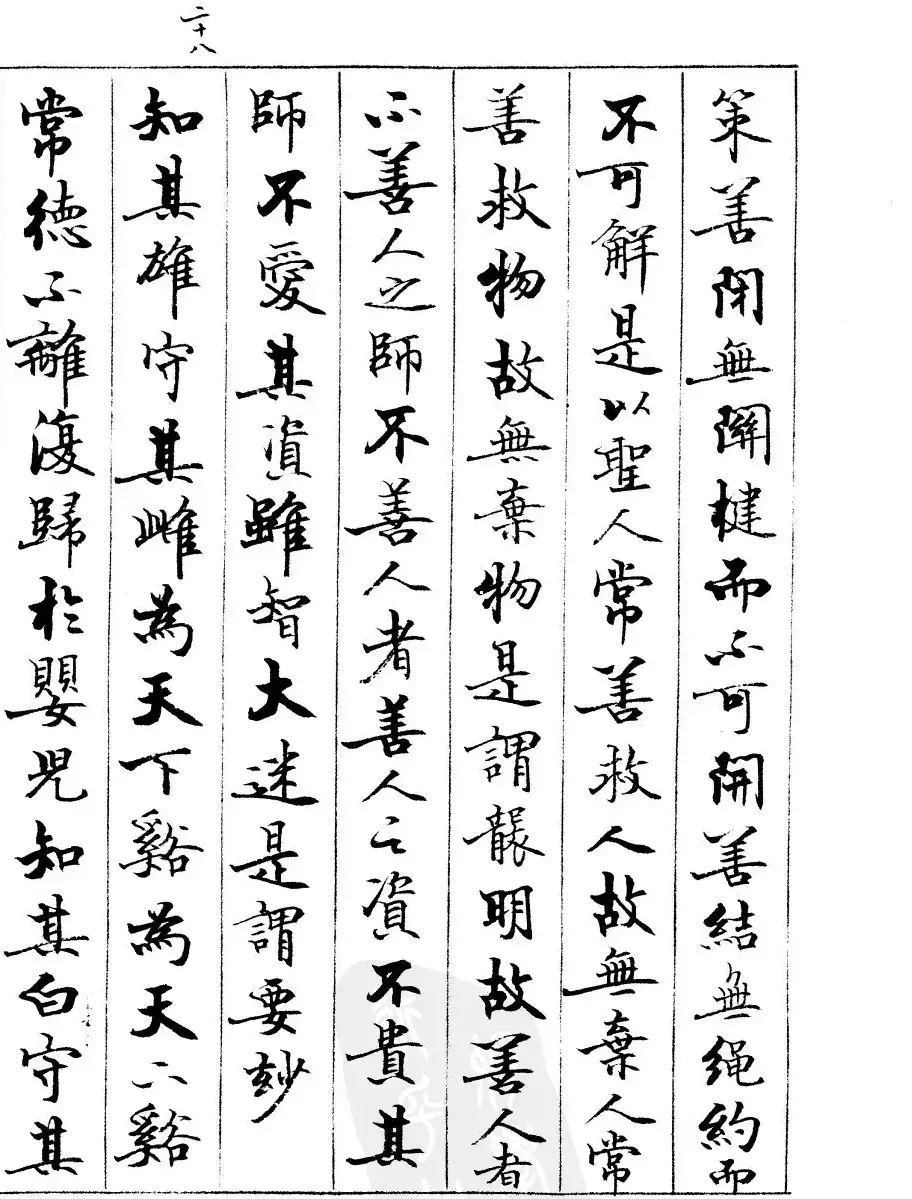 策善閉無關楗而不可開善結無繩約而
不可解是以聖人常善救人故無棄人常
善救物故無棄物是謂襲明故善人者
不善人之師不善人者善人之資不貴其
師不愛其資雖智大迷是謂要妙
二十八
知其雄守其雌為天下谿為天下谿
常德不離復歸於嬰兒知其白守其